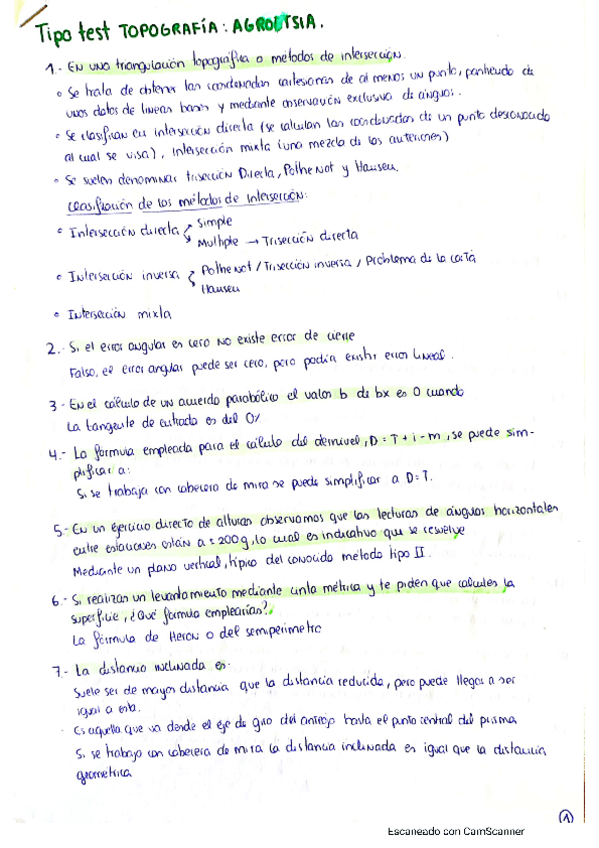 Tipo test TOPOGRAFÍA: AGROITSIA.
1.- En una triangulación topográfica o métodos de intersección.
• Se trata de obtener las coordenadas cartesianas de al menos un punto, partiendo de
unos datos de lineas bases y mediante observación exclusiva de ángulos.
• Se clasifican en intersección directa (se calculan las coordenadas de un punto desconocido
al cual se visa), intersección mixta (una mezcla de las anteriores)
• Se suelen denominar trisección Directa, Pothenot y Hansen.
Clasificación de los métodos de Intersección:
• Intersección directa
Simple
Multiple → Trisección directa
• Intersección inversa
Pothenot / Trisección inversa / Problema de la carta
Hansen
• Intersección mixta
2.- Si el error angular es cero no existe error de cierre
Falso, el error angular puede ser cero, pero podría existir error lineal.
3.- En el cálculo de un acuerdo parabólico el valor b de bx es 0 cuando
La tangente de entrada es del 0%
4.- La fórmula empleada para el cálculo del desnivel, D = T + i - m, se puede sim-
plificar a:
Si se trabaja con cabecera de mira se puede simplificar a D = T.
5.- En un ejercicio directo de alturas observamos que las lecturas de ángulos horizontales
entre estaciones están a ± 200g, lo cual es indicativo que se resuelve
Mediante un plano vertical, típico del conocido método tipo II.
6.- Si realizas un levantamiento mediante cinta métrica y te piden que calcules la
superficie, ¿Qué formula emplearias?
La fórmula de Heron o del semiperimetro
7.- La distancia inclinada es:
Suele ser de mayor distancia que la distancia reducida, pero puede llegar a ser
igual a esta.
- Es aquella que va desde el eje de giro del anteojo hasta el punto central del prisma
Si se trabaja con cabecera de mira la distancia inclinada es igual que la distancia
geometrica
1
Escaneado con CamScanner